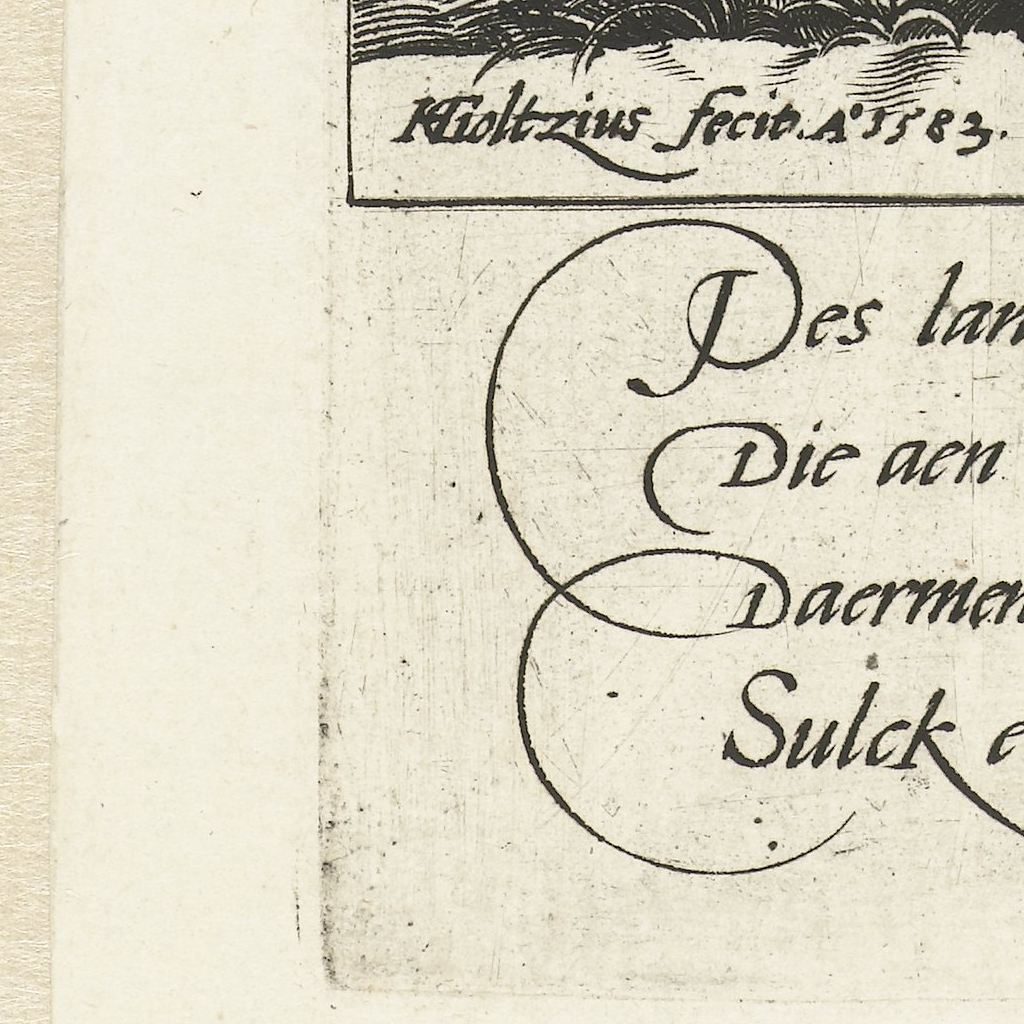 HGoltzius fecit. A° 1583.
Des lan
Die aen
Daermen
Sulck e